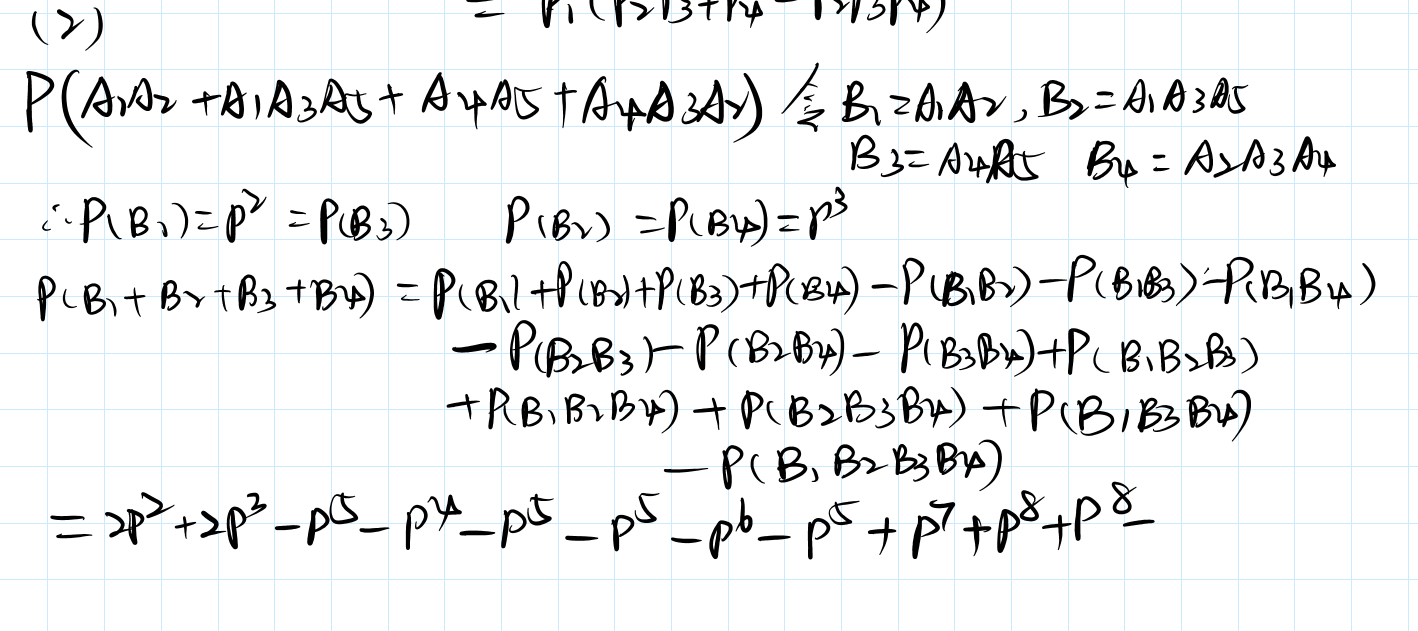 = P₁(P₂P₃+P₄-P₂P₃P₄)
(2)
P(A₁A₂+A₁A₃A₅+A₄A₅+A₄A₃A₂) 令 B₁=A₁A₂, B₂=A₁A₃A₅
B₃=A₄A₅ B₄=A₂A₃A₄
∴P(B₁)=p²=P(B₃) P(B₂)=P(B₄)=p³
P(B₁+B₂+B₃+B₄)=P(B₁)+P(B₂)+P(B₃)+P(B₄)-P(B₁B₂)-P(B₁B₃)-P(B₁B₄)
-P(B₂B₃)-P(B₂B₄)-P(B₃B₄)+P(B₁B₂B₃)
+P(B₁B₂B₄)+P(B₂B₃B₄)+P(B₁B₃B₄)
-P(B₁B₂B₃B₄)
=2p²+2p³-p⁵-p⁴-p⁵-p⁵-p⁶-p⁵+p⁷+p⁸+p⁸-